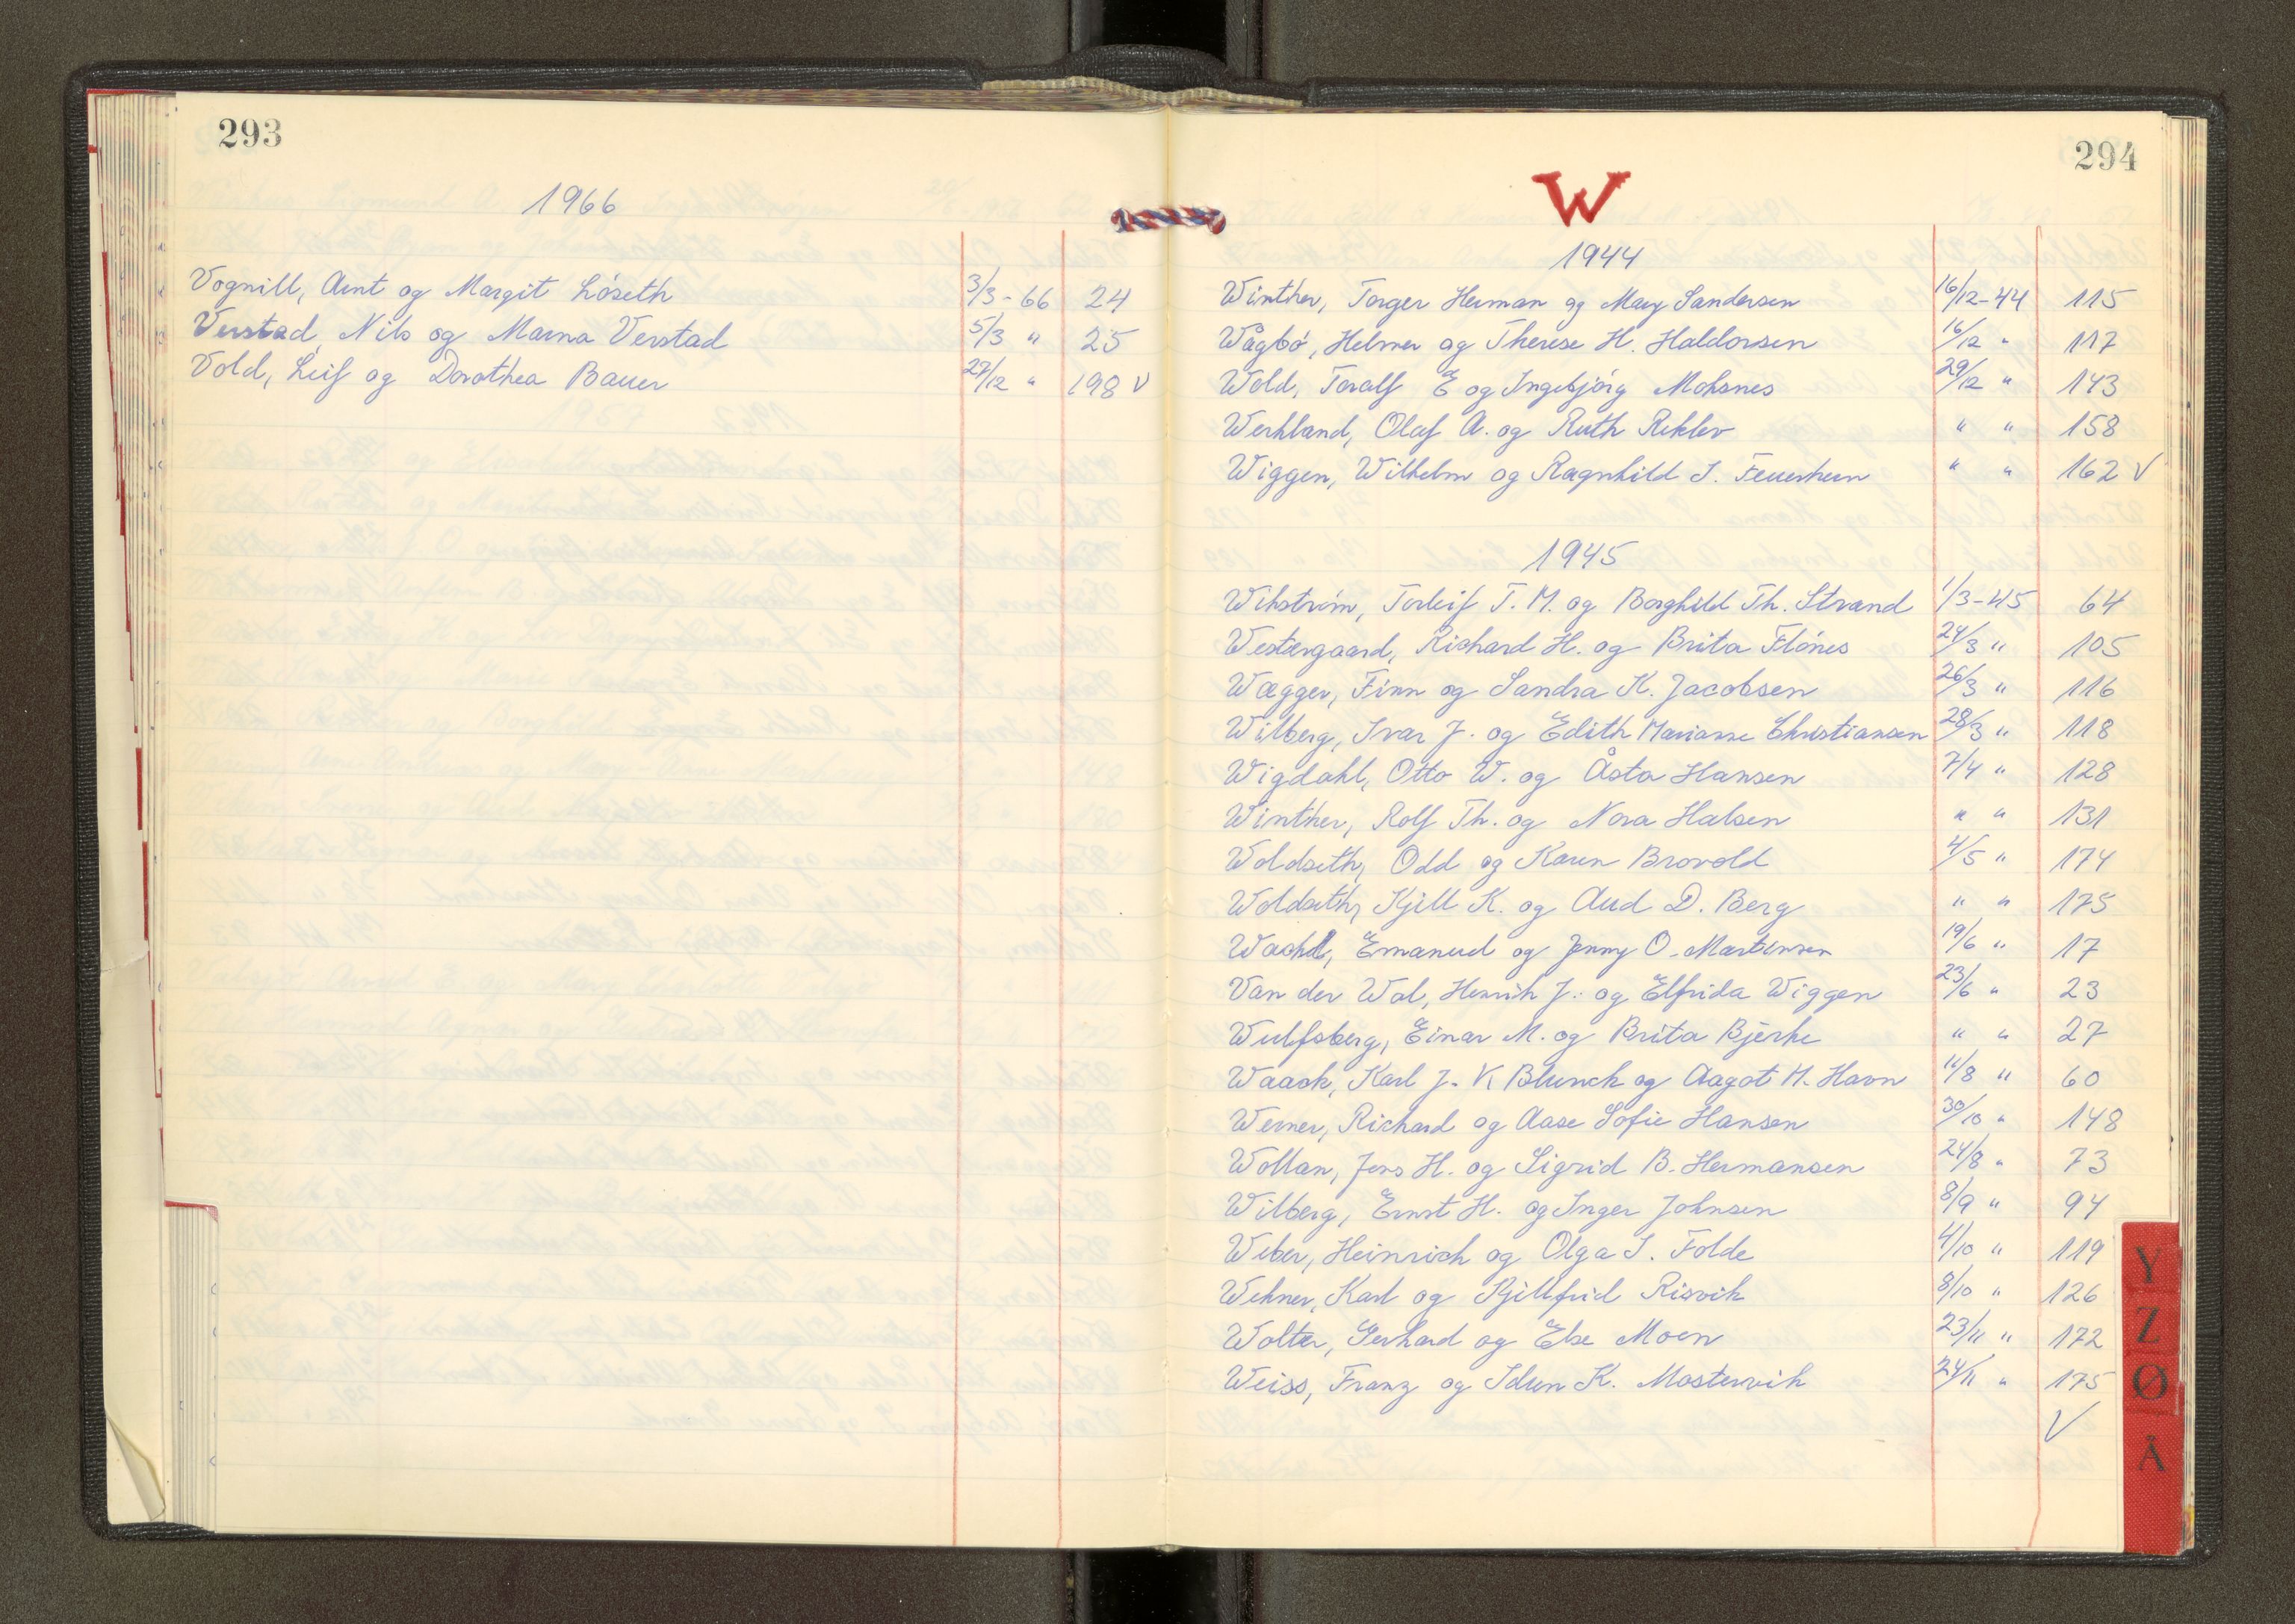 293
1966
Vognill, Arnt og Margit Lóseth 3/3-66 24
Verstad, Nils og Marna Verstad 5/3 " 25
Vold, Leif og Dorothea Bauer 27/12 " 198 V
294
W
1944
Winther, Torger Herman og Mary Sandersen 16/12-44 115
Wågbó, Helmer og Therese H. Haldorsen 16/12 " 117
Wold, Toralf E og Ingebjórg Moksnes 29/12 " 143
Werkland, Olaf A. og Ruth Reklev " " 158
Wiggen, Wilhelm og Ragnhild S. " " 162 V
1945
Wikstróm, Torleif T. M. og Borghild Th. Strand 1/3-45 64
Westergaard, Richard H. og Brita Flónes 24/3 " 105
Wægger, Finn og Sandra K. Jacobsen 26/3 " 116
Wilberg, Ivar J. og Edith Marianne Christiansen 28/3 " 118
Wigdahl, Otto W. og Åsta Hansen 7/4 " 128
Winther, Rolf Th. og Nora Halsen " " 131
Woldseth, Odd og Karen Brovold 4/5 " 174
Woldseth, Kjell K. og Aud D. Berg " " 175
Wachtl, Emanuel og Jenny O. Martinsen 19/6 " 17
Van der Wal, Henrik J. og Elfrida Wiggen 23/6 " 23
Wulfsberg, Einar M. og Brita Bjerke " " 27
Waack, Karl J. K Blunck og Aagot M. Havn 11/8 " 60
Werner, Richard og Aase Sofie Hansen 30/10 " 148
Wollan, Jens H. og Sigrid B. Hermansen 24/8 " 73
Wilberg, Ernst H. og Inger Johnsen 8/9 " 94
Weber, Heinrich og Olga S. Folde 4/10 " 119
Wehner, Karl og Kjellfrid Risvik 8/10 " 126
Wolter, Gerhard og Else Moen 23/11 " 172
Weiss, Franz og Idun K. Mostervik 24/11 " 175
V
Y
Z
Ø
Å